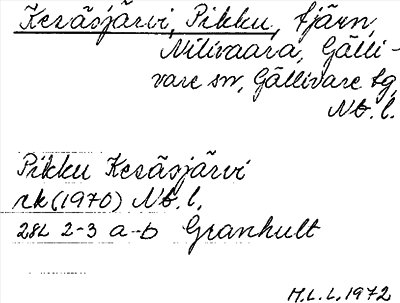 Kesäsjärvi, Pikku, tjärn,
Nilivaara, Gälli-
vare sn, Gällivare tg,
Nb. l.
Pikku Kesäsjärvi
rk (1970) Nb. l.
28L 2-3 a-b Granhult
H.L.L. 1972